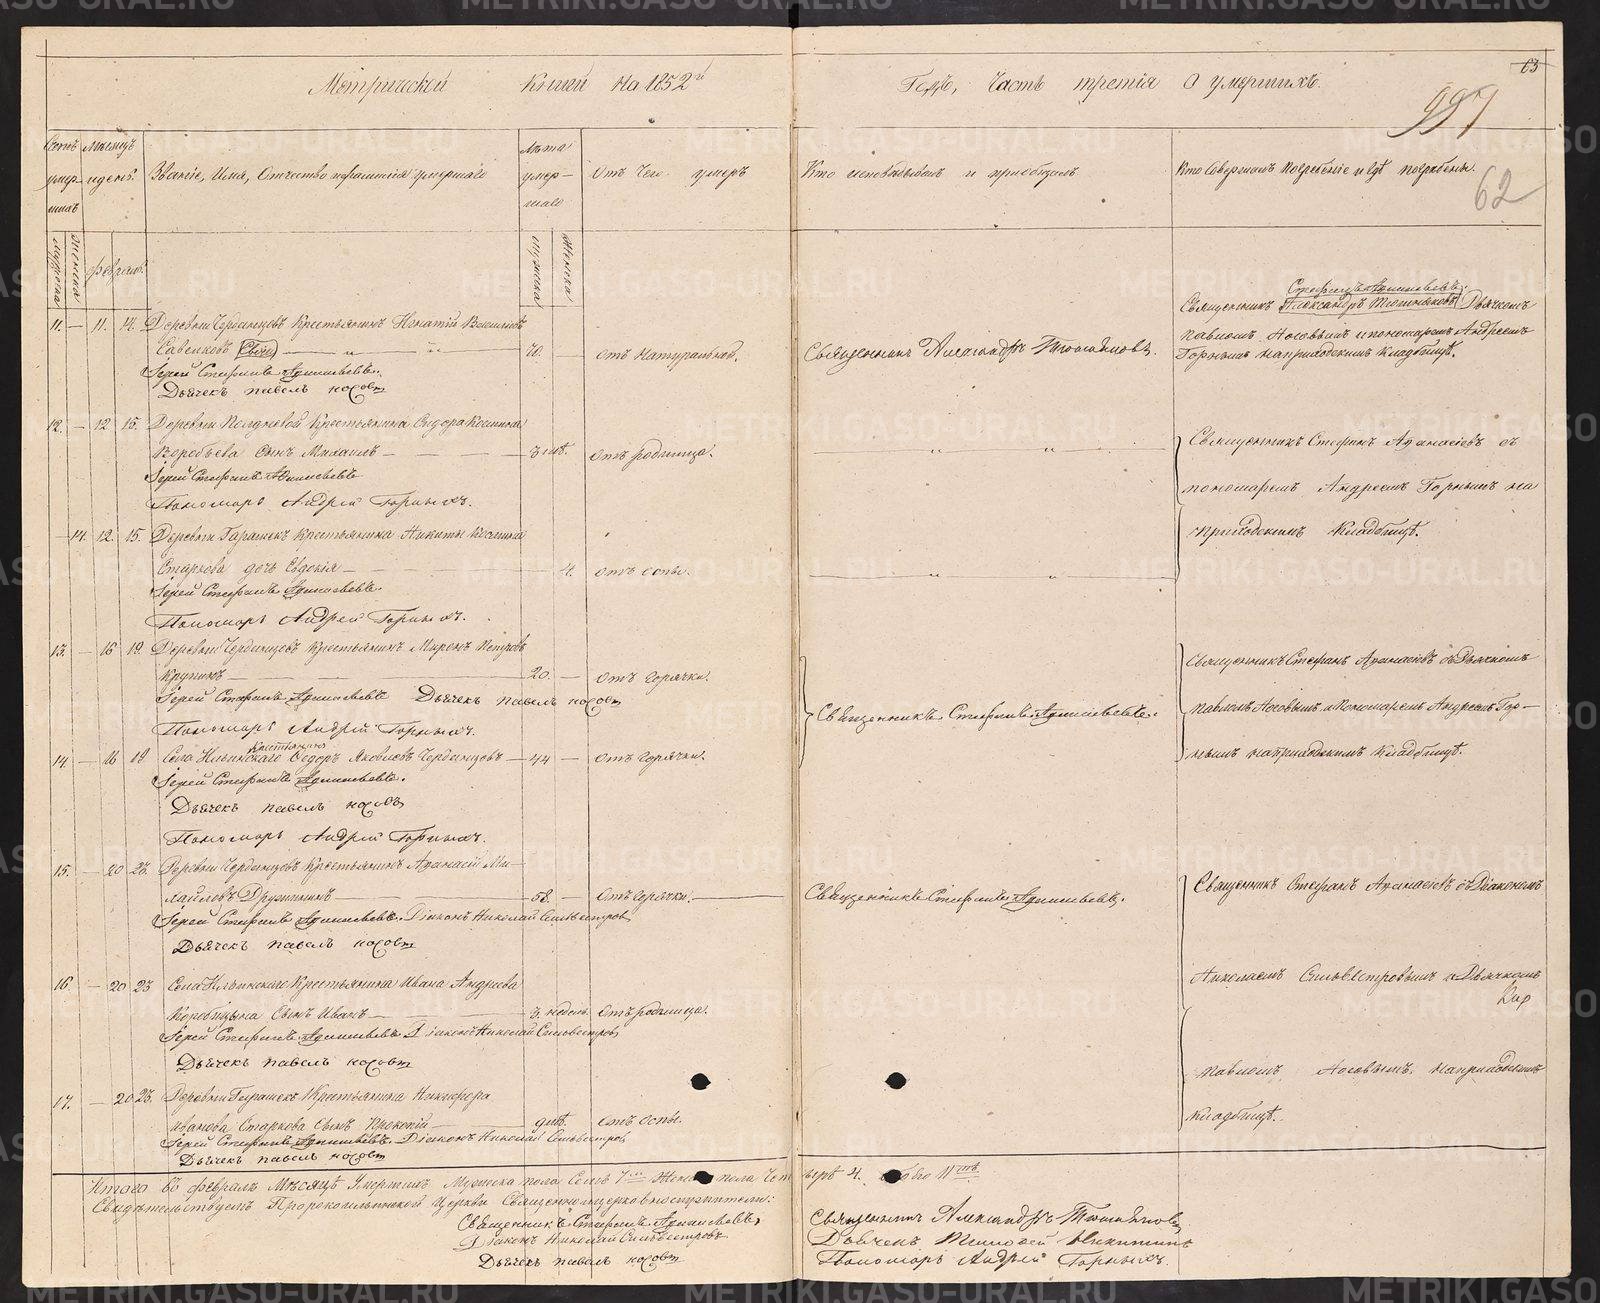 Метрической Книги на 1852й
Годъ, Часть третія О умершихъ.
63
997
62
Счетъ умершихъ
Мѣсяцъ и день.
Званіе, Имя, Отчество и фамилія умершаго
Лѣта умершаго
Отъ Чего умеръ
Кто исповѣдывалъ и пріобщалъ
Кто Совершалъ Погребеніе и гдѣ погребены.
Мужеска
Женска
Февраль.
Мужеска
Женска
11. — 11. 14. Деревни Чердынцовъ Крестьянинъ Игнатій
Савелковъ — " — " — 70. — отъ Натуральной. Священникъ Александръ
Іерей Стефанъ Афанасьевъ.
Дьячекъ павелъ носовъ
Стефанъ Афанасьевъ
Священникъ Александръ Дьячкомъ
Павломъ Носовымъ и пономаремъ Андреемъ
Горныхъ на приходскомъ кладбищѣ.
12. — 12 15. Деревни Полдневой Крестьянина Сидора
Воробьева Сынъ Михаилъ — 3 лѣт. отъ родимца. — " — " —
Іерей Стефанъ Афанасьевъ
Пономарь Андрей Горныхъ.
Священникъ Стефанъ Афанасіевъ съ
пономаремъ Андреемъ Горнымъ на
приходскомъ кладбищѣ.
— 14. 12. 15. Деревни Гарашекъ Крестьянина Никиты
Старкова дочь Евдокія — 4. отъ оспы. — " — " —
Іерей Стефанъ Афанасьевъ.
Пономарь Андрей Горныхъ.
13. — 16 19. Деревни Чердынцовъ Крестьянинъ Миронъ Петровъ
Крупинъ — 20. — отъ горячки.
Іерей Стефанъ Афанасьевъ Дьячекъ павелъ носовъ
Пономарь Андрей Горныхъ.
Священникъ Стефанъ Афанасьевъ.
Священникъ Стефанъ Афанасіевъ съ Дьячкомъ
Павломъ Носовымъ и Пономаремъ Андреемъ Гор-
нымъ на приходскомъ кладбищѣ.
крестьянинъ
14. — 16 19 Села Ильинскаго Ѳедоръ Яковлевъ Чердынцовъ — 44 — отъ Горячки.
Іерей Стефанъ Афанасьевъ.
Дьячекъ павелъ носовъ
Пономарь Андрей Горныхъ.
15. — 20 23. Деревни Чердынцовъ Крестьянинъ Афанасій Ми-
хайловъ Дружининъ — 58. — Отъ Горячки. — Священникъ Стефанъ Афанасьевъ.
Іерей Стефанъ Афанасьевъ. Діаконъ Николай Сильвестровъ
Дьячекъ павелъ носовъ
Священникъ Стефанъ Афанасіевъ съ Діакономъ
Николаемъ Сильвестровымъ и Дьячкомъ
Павломъ Носовымъ. на приходскомъ
кладбищѣ.
16 — 20 23 Села Ильинскаго Крестьянина Ивана Андреева
Коробицына Сынъ Иванъ — 3. недель. Отъ родимца.
Іерей Стефанъ Афанасьевъ Діаконъ Николай Сильвестровъ
Дьячекъ павелъ носовъ
17. — 20 23. Деревни Гарашекъ Крестьянина Никифора
Иванова Старкова Сынъ Прокопій — лѣт. отъ Оспы.
Іерей Стефанъ Афанасьевъ. Діаконъ Николай Сильвестровъ
Дьячекъ павелъ носовъ
Итого въ февралѣ Мѣсяцѣ Умершихъ Мужеска пола Семь 7 Женска пола Четыре 4. обоего 11
Свидѣтельствуемъ Пророкоильинской Церкви Священноцерковнослужители:
Священникъ Стефанъ Афанасьевъ
Діаконъ Николай Сильвестровъ
Дьячекъ павелъ носовъ
Священникъ Александръ
Дьячекъ Тимофей Никитинъ
Пономарь Андрей Горныхъ.
METRIKI.GASO-URAL.RU